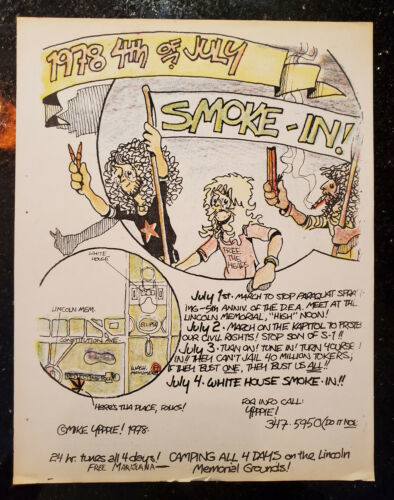 1978 4TH OF JULY
SMOKE-IN!
FREE THE
WHITE HOUSE
ELLIPSE
LINCOLN MEM.
CONSTITUTION AVE.
WASH. MONUMENT
HERE'S THA PLACE, FOLKS!
July 1st- MARCH TO STOP PARAQUAT SPRAY-
ING-5th ANNIV. OF THE D.E.A. MEET AT THE
LINCOLN MEMORIAL, "HIGH" NOON!
July 2 - MARCH ON THE KAPITOL TO PROTEST
OUR CIVIL RIGHTS! STOP SON OF S-1!!
July 3 - TURN ON! TUNE IN! TURN YOURSELF
IN!! THEY CAN'T JAIL 40 MILLION TOKERS;
IF THEY BUST ONE, THEY BUST US ALL!!
July 4 - WHITE HOUSE SMOKE-IN!!
FOR INFO CALL:
YIPPIE!
347-5950/DO IT NOW
©MIKE YIPPIE! 1978
24 hr. tunes all 4 days!
FREE MARIJUANA-
CAMPING ALL 4 DAYS on the Lincoln
Memorial Grounds!